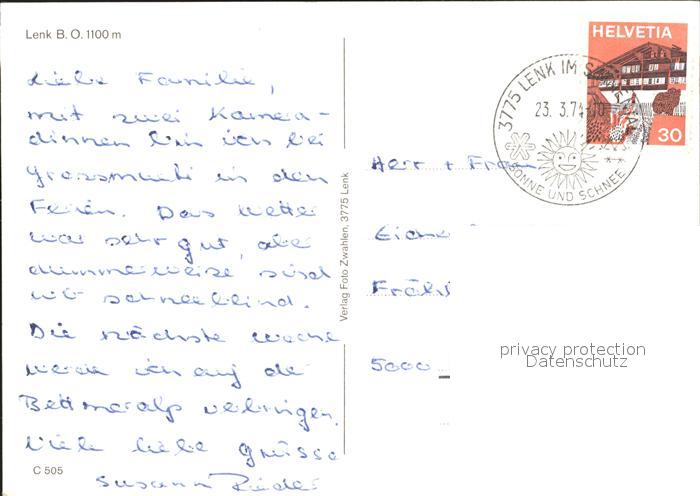 Lenk B. O. 1100 m
Liebe Familie,
mit zwei Kamera-
dinnen bin ich bei
Grossmuti in den
Ferien. Das Wetter
war sehr gut, aber
dummerweise sind
wir schneeblind.
Die nächste Woche
werde ich auf der
Bettmeralp verbringen.
Viele liebe Grüsse
Susann
C 505
Verlag Foto Zwahlen, 3775 Lenk
HELVETIA
30
3775 LENK IM
23. 3. 74
SONNE UND SCHNEE
Herr + Frau
5000
privacy protection
Datenschutz